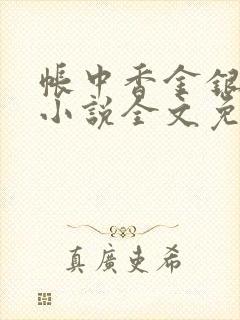 帳中香金銀
小説全文免
真廣吏希